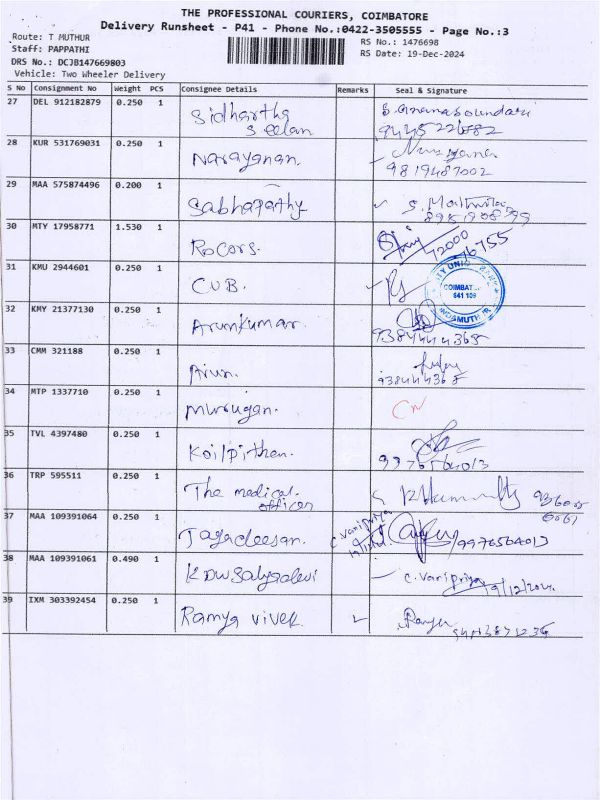 THE PROFESSIONAL COURIERS, COIMBATORE
Delivery Runsheet - P41 - Phone No.:0422-3505555 - Page No.:3
Route: T MUTHUR
RS No.: 1476698
Staff: PAPPATHI
RS Date: 19-Dec-2024
DRS No.: DCJB147669803
Vehicle: Two Wheeler Delivery
S No Consignment No Weight PCS Consignee Details Remarks Seal & Signature
27 DEL 912182879 0.250 1 Sidhartha
Seelan
28 KUR 531769031 0.250 1 Narayanan.
9819487002
29 MAA 575874496 0.200 1 Sabhapathy
30 MTY 17958771 1.530 1 Rocars.
31 KMU 2944601 0.250 1 CUB.
COIMBAT
641 109
32 KMY 21377130 0.250 1 Arunkumar.
9384444368
33 CMM 321188 0.250 1 Arun.
34 MTP 1337710 0.250 1 Murugan.
35 TVL 4397480 0.250 1 Koilpithan.
9976564013
36 TRP 595511 0.250 1 The medical.
officer
37 MAA 109391064 0.250 1 Jagadeesan. C. Varipriya
9976564013
38 MAA 109391061 0.490 1 C. Varipriya
19/12/2024
39 IXM 303392454 0.250 1 Ramya vivek. Ramya